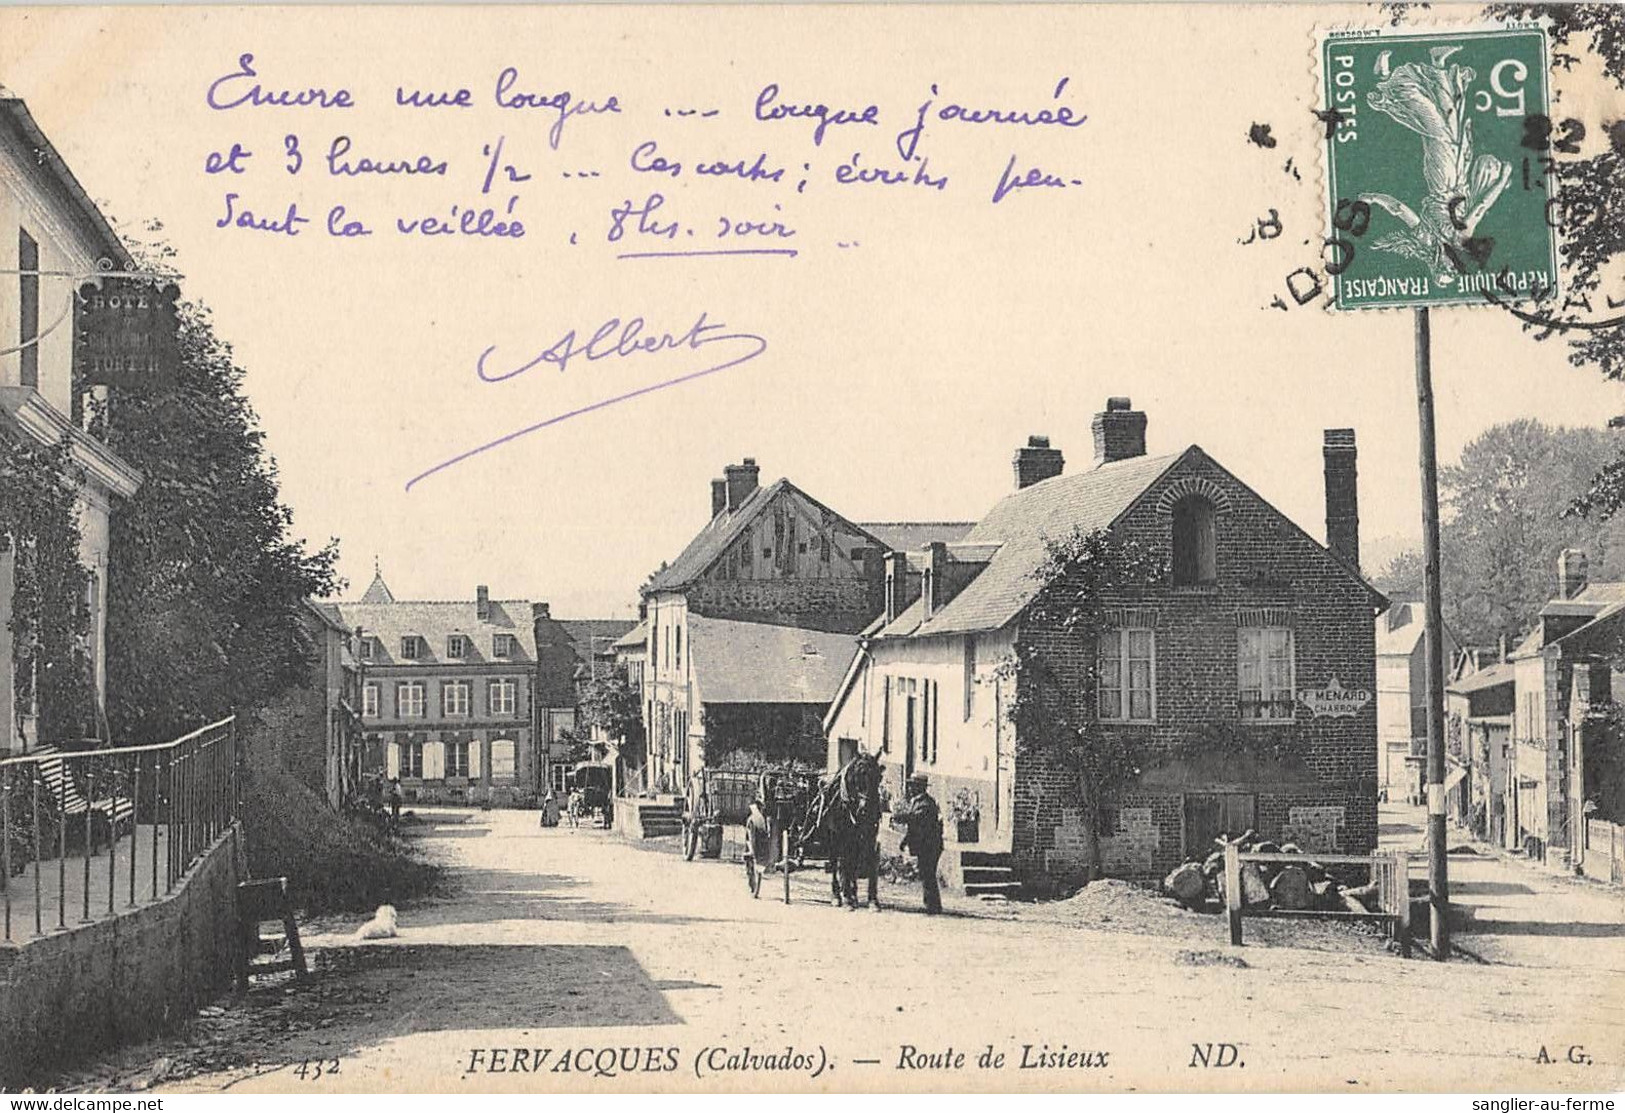 Encore une longue ... longue journée
et 3 heures 1/2 ... Ces cartes ; écrites pen-
dant la veillée, 8hs. soir ..
Albert
5c
POSTES
RÉPUBLIQUE FRANÇAISE
22
13
08
DOS
HOTEL
F. MENARD
CHARRON
432 FERVACQUES (Calvados). — Route de Lisieux ND. A. G.
sanglier-au-ferme